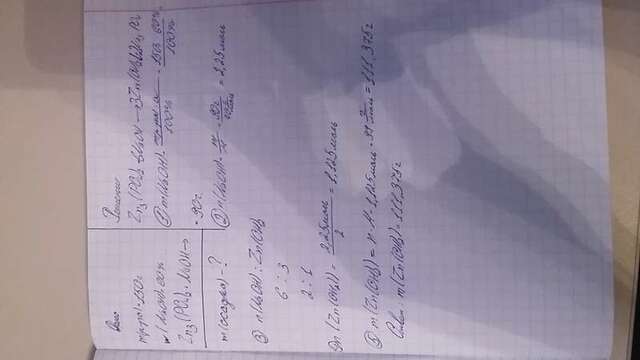 Дано
m(р-ра)=150г
w(NaOH)=60%
Zn3(PO4)2+NaOH→
m(осадка)-?
Решение
Zn3(PO4)2+6NaOH→3Zn(OH)2+2Na3PO4
① m(NaOH)= m(р-ра)·w / 100% = 150·60% / 100% =
= 90г
② n(NaOH)= m/M = 90г / 40 г/моль = 2,25моль
③ n(NaOH) : Zn(OH)2
6 : 3
2 : 1
n(Zn(OH)2)= 2,25моль / 2 = 1,125моль
⑤ m(Zn(OH)2)= n·M=1,125моль·99 г/моль=111,375г
Ответ: m(Zn(OH)2)=111,375г